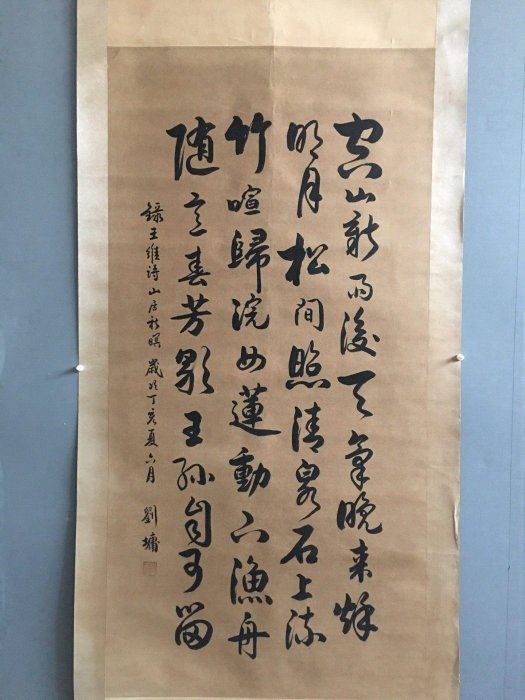 空山新雨後天氣晚来秋
明月松間照清泉石上流
竹喧歸浣女蓮動下漁舟
随意春芳歇王孫自可留
錄王維詩山居秋暝 歲次丁亥夏六月 劉墉